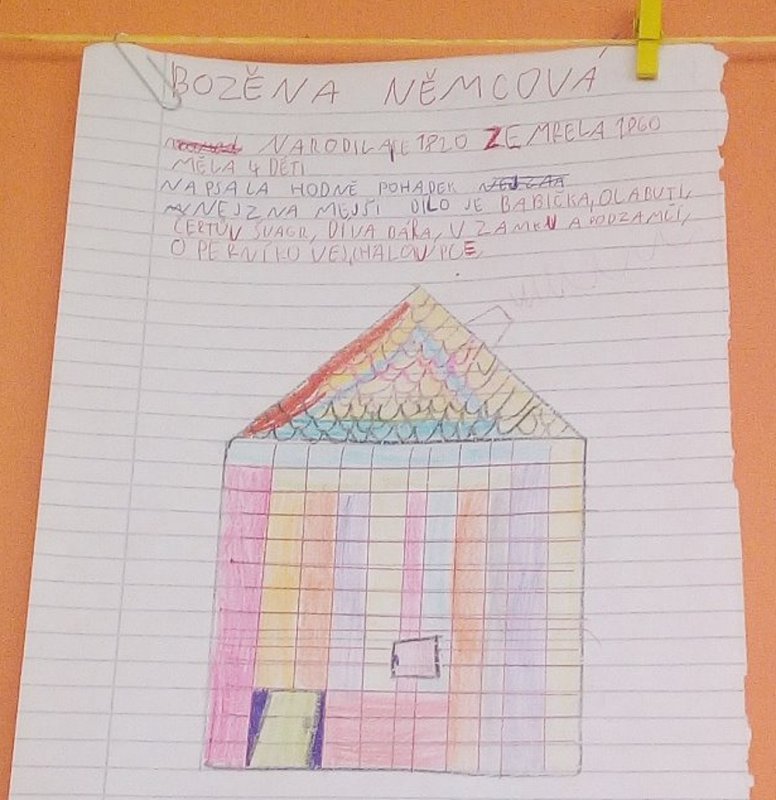 BOZĚNA NĚMCOVÁ
NARODILA SE 1820 ZEMRELA 1860
MĚLA 4 DĚTI
NAPSALA HODNĚ POHADEK
NEJZNAMEJŠI DILO JE BABIČKA, OLABUTI,
ČERTŮV ŠVAGR, DIVA BÁRA, V ZAMKU A PODZAMČÍ,
O PERNÍKOVE CHALOUPCE